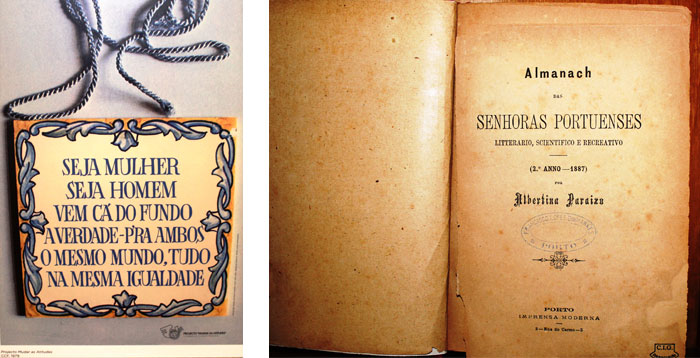 SEJA MULHER
SEJA HOMEM
VEM CÁ DO FUNDO
A VERDADE-P'RA AMBOS
O MESMO MUNDO, TUDO
NA MESMA IGUALDADE
Projecto Mudar as Atitudes
Almanach
DAS
SENHORAS PORTUENSES
LITTERARIO, SCIENTIFICO E RECREATIVO
(2.º ANNO—1887)
POR
Albertina Paraizo
PORTO
PORTO
IMPRENSA MODERNA